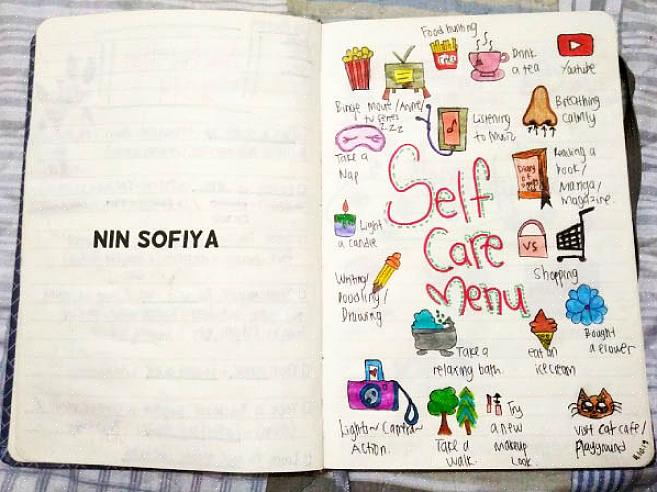 NIN SOFIYA
Food hunting
Drink
a tea
Youtube
Binge movie/Anime/
tv series
zzz
Take a
Nap
Listening
to music
Breathing
calmly
Reading a
book/
Manga/
magazine.
Diary
of
Self
Care
Menu
Light
a candle
VS
Shopping
Writing/
Doodling/
Drawing
Take a
relaxing bath.
eat an
ice cream
Bought
a flower
Lights~ Camera~
Action.
Take a
walk.
Try
a new
makeup
look.
visit cat cafe/
playground